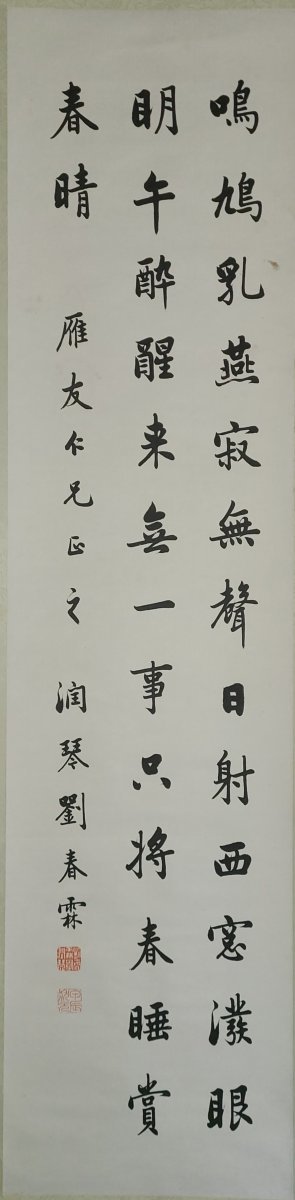 鳴鳩乳燕寂無聲日射西窓潑眼
明午醉醒来無一事只將春睡賞
春晴　雁友仁兄正之　润琴劉春霖